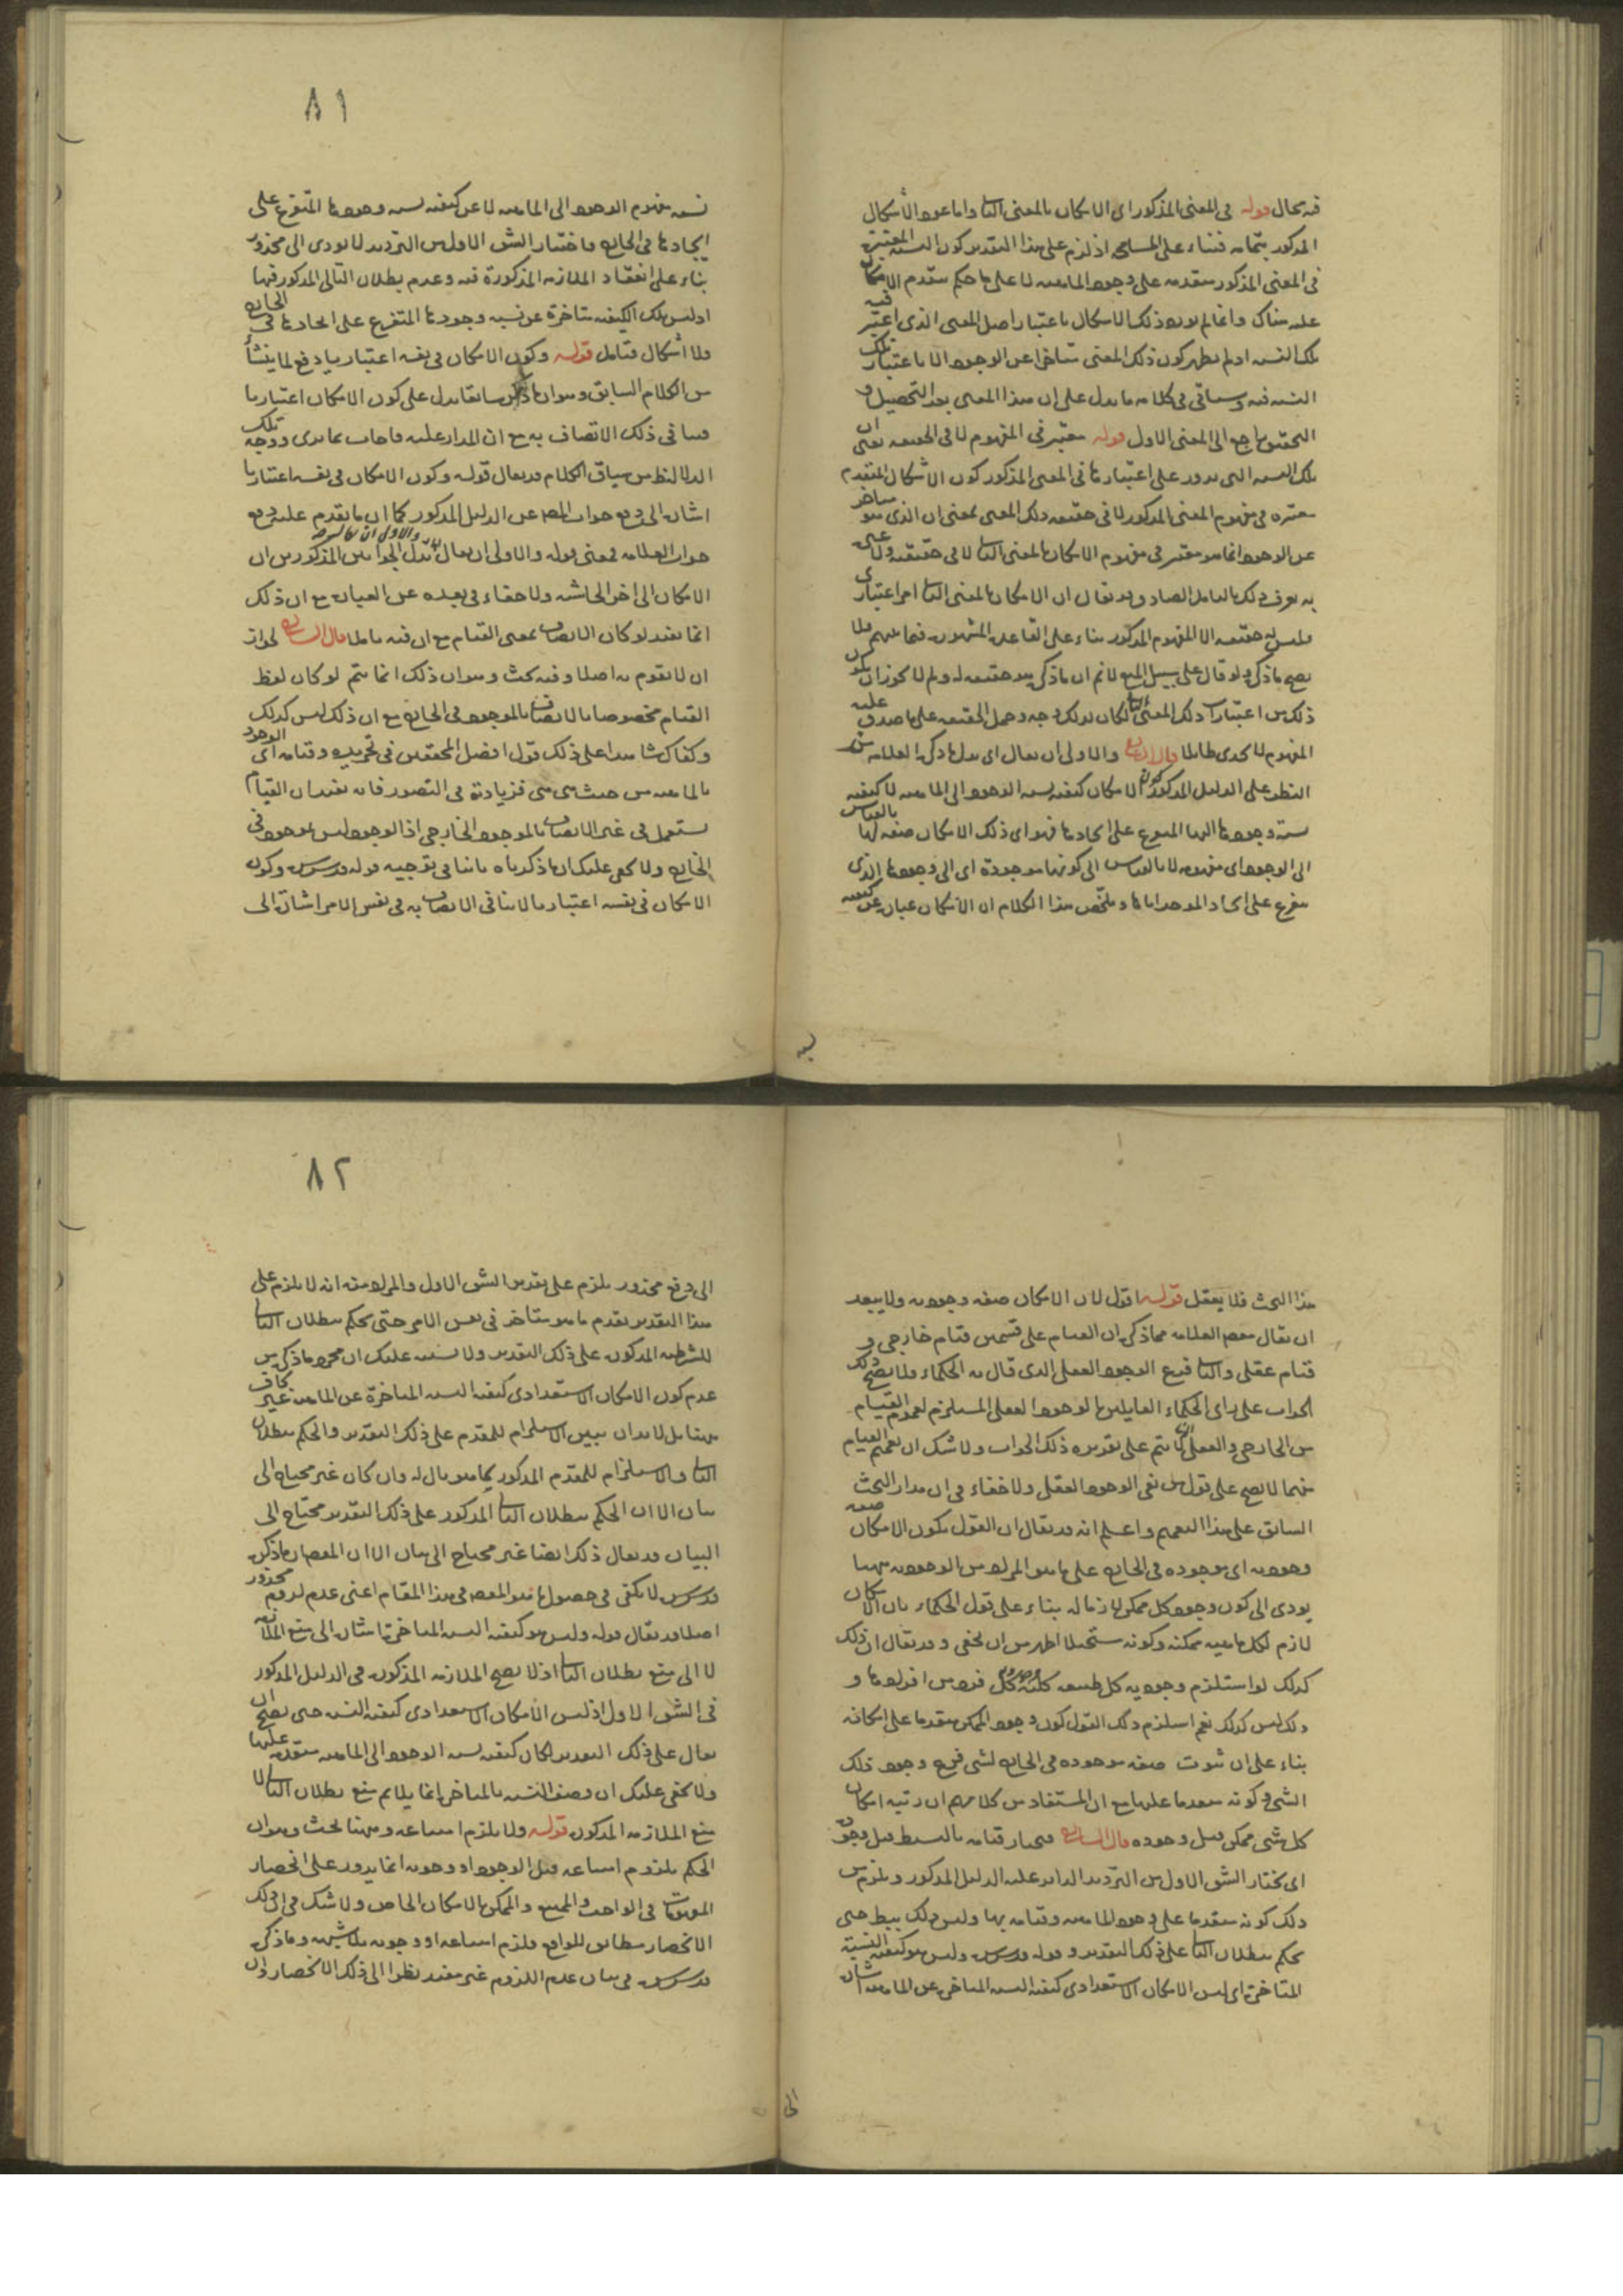 فيه بحال قوله في المعنى المذكور اى الامكان بالمعنى الثانى واما عود الاشكال
المذكور بتمامه فبناء على المسامحة اذ لزم على هذا التقدير كون النسبة المعتبرة
فى المعنى المذكور متقدمه على وجود الماهيه لا على ما حكم بتقدم الامكان
عليه هناك وانما لم يورد ذلك الاشكال باعتبار اصل المعنى الذى اعتبر فيه
تلك النسبه اذ لم يظهر كون ذلك المعنى متاخرا عن الوجود الا باعتبار تلك
النسبه فيه وسياتى فى كلامه ما يدل على ان هذا المعنى بعد التحصيل و
التحقيق راجع الى المعنى الاول قوله معتبر فى المفهوم لا فى الحقيقه يعنى ان
تلك النسبه التى يدور على اعتبارها فى المعنى المذكور كون الاشكال المتقدم
معتبره فى مفهوم المعنى المذكور لا فى حقيقه ذلك المعنى بمعنى ان الذى هو متاخر
عن الوجود انما هو معتبر فى مفهوم الامكان بالمعنى الثانى لا فى حقيقته
به يعرف ذلك بالتامل الصادق وقد يقال ان الامكان بالمعنى الثانى امر اعتبارى
فليس له حقيقه الا المفهوم المذكور بناء على القاعدة المشهورة فيما بينهم فلا
يصح ما ذكره ولو قال على سبيل المنع لا نم ان ما ذكره هو حقيقته له ولم لا يجوز ان يكون
ذلك من اعتبارات ذلك المعنى الثانى لكان لذلك وجه وحمل الحقيقه على ما صدق عليه
المفهوم لا يجدى طائلا قال الشارح والاولى ان يقال اى بدل ما ذكره العلامه من
النظر على الدليل المذكور كون الامكان كيفيه نسبه الوجود الى الماهيه لا كيفيه
نسبة وجودها اليها المتفرع على ايجادها فهو اى ذلك الامكان صفه لها بالقياس
الى الوجود اى مفهومه لا بالقياس الى كونها موجودة اى الى وجودها الذى
يتفرع على ايجاد الموجد اياها وملخص هذا الكلام ان الامكان عباره عن كيفيه
٨١
نسبه مفهوم الوجود الى الماهيه لا عن كيفيه نسبه وجودها المتفرع على
ايجادها فى الخارج فاختيار الشق الاول من الترديد لا يودى الى محذور
بناء على انعقاد الملازمه المذكورة فيه وعدم بطلان التالى المذكور فيها
اذ ليس تلك الكيفيه متاخرة عن نسبه وجودها المتفرع على ايجادها فى الخارج
فلا اشكال فتامل قوله وكون الامكان فى نفسه اعتباريا دفع لما ينشأ
من الكلام السابق وهو ان ما ذكر سابقا يدل على كون الامكان اعتباريا
فينافى ذلك الاتصاف به مع ان المدار عليه فاجاب بما ترى ووجه تلك
الدلالة ظ من سياق الكلام وقد يقال قوله وكون الامكان فى نفسه اعتباريا
اشارة الى دفع جواب المص عن الدليل المذكور كما ان ما تقدم عليه دفع
جواب العلامه فمعنى قوله والاولى ان يقال بدل الجوابين المذكورين ان
الامكان الى اخر الحاشيه ولا خفاء فى بعده عن العبارة مع ان ذلك
انما يفيد لو كان الاتصاف بمعنى القيام مع ان فيه ما فيه قال الشارح لجواز
ان لا يقوم به اصلا وفيه بحث وهو ان ذلك انما يتم لو كان لفظ
القيام مخصوصا بالاتصاف بالموجود فى الخارج مع ان ذلك ليس كذلك
وكفاك شاهدا على ذلك قول افضل المحققين فى تجريده وقيامه اى الوجود
بالماهيه من حيث هى هى فزيادته فى التصور فانه يفيد ان القيام
يستعمل فى غير الاتصاف بالموجود الخارجى اذ الوجود ليس بموجود فى
الخارج ولا يخفى عليك ان ما ذكرناه ينافى توجيه قوله قدس سره وكون
الامكان فى نفسه اعتباريا لا ينافى الاتصاف به فى نفس الامر اشارة الى
هذا البحث فلا يغفل قوله اقول لان الامكان صفه وجوديه ولا يبعد
ان يقال مقصود العلامه مما ذكره ان القيام على قسمين قيام خارجى و
قيام عقلى والثانى فرع الوجود العقلى الذى قال به الحكماء فلا يصح ذلك
الجواب على راى الحكماء القايلين بالوجود العقلى المستلزم لعموم القيام
من الخارجى والعقلى انما يتم على تقديره ذلك الجواب ولا شك ان تعميم القيام
منهما لا يصح على قول من نفى الوجود العقلى ولا خفاء فى ان مدار البحث
السابق على هذا التعميم واعلم انه قد يقال ان القول بكون الامكان صفه
وجوديه اى موجوده فى الخارج على ما هو المراد من الوجوديه ههنا
يودى الى كون وجود كل ممكن لازما له بناء على قول الحكماء بان الامكان
لازم لكل ماهيه ممكنه وكونه مستحيلا اظهر من ان يخفى وقد يقال ان ذلك
كذلك لو استلزم وجوديه كل طبيعه كليه وجود كل فرد من افرادها و
ذلك ليس كذلك نعم استلزم ذلك القول كون وجود الممكن متقدما على امكانه
بناء على ان ثبوت صفه موجوده فى الخارج لشى فرع وجود ذلك
الشى وكونه متقدما عليها مع ان المستفاد من كلامهم ان رتبه امكان
كل شى ممكن قبل وجوده قال الشارح فيختار قيامه بالبسيط قبل وجوده
اى يختار الشق الاول من الترديد الدائر عليه الدليل المذكور ويلزم من
ذلك كونه متقدما على وجود الماهيه وقيامه بها وليس ذلك ببط حتى
يحكم ببطلان التالى على ذلك التقدير وقوله قدس سره وليس هو كيفيه النسبة
المتاخرة اى ليس الامكان الاستعدادى كيفيه النسبه المتاخره عن الماهيه اشارة
الى
٨٢
الى دفع محذور يلزم على تقدير الشق الاول والمراد منه انه لا يلزم على
هذا التقدير تقدم ما هو متاخر فى نفس الامر حتى يحكم ببطلان التالى
للشرطيه المذكوره على ذلك التقدير ولا يشتبه عليك ان مجرد ما ذكره من
عدم كون الامكان الاستعدادى كيفيه النسبه المتاخرة عن الماهيه غير كاف
ههنا بل لا بد ان يبين الاستلزام للمقدم على ذلك التقدير والحكم ببطلان
التالى والاستلزام للمقدم المذكور كما هو قال له وان كان غير محتاج الى
بيان الا ان الحكم ببطلان التالى المذكور على ذلك التقدير محتاج الى
البيان وقد يقال ذلك ايضا غير محتاج الى بيان الا ان المقصود ان ما ذكره
قدس سره لا يكفى فى حصول ما هو المقصود فى هذا المقام اعنى عدم لزوم محذور
اصلا وقد يقال قوله وليس هو كيفيه النسبه المتاخرة اشارة الى منع الملازمه
لا الى منع بطلان التالى اذ لا يصح الملازمه المذكوره فى الدليل المذكور
فى الشق الاول اذ ليس الامكان الاستعدادى كيفيه النسبه حتى يصح ان
يقال على ذلك التقدير لكان كيفيه نسبه الوجود الى الماهيه متقدمه عليها
ولا يخفى عليك ان وصف النسبه بالمتاخره انما يلايم منع بطلان التالى لا
منع الملازمه المذكوره قوله ولا يلزم امتناعه وههنا بحث وهو ان
الحكم بلزوم امتناعه قبل الوجود او وجوبه انما يدور على انحصار
المفهومات فى الواجب والممتنع والممكن بالامكان الخاص ولا شك فى ان ذلك
الانحصار مطابق للواقع فلزم امتناعه او وجوبه بلا شبهه وما ذكره
قدس سره فى بيان عدم اللزوم غير مفيد نظرا الى ذلك الانحصار وان